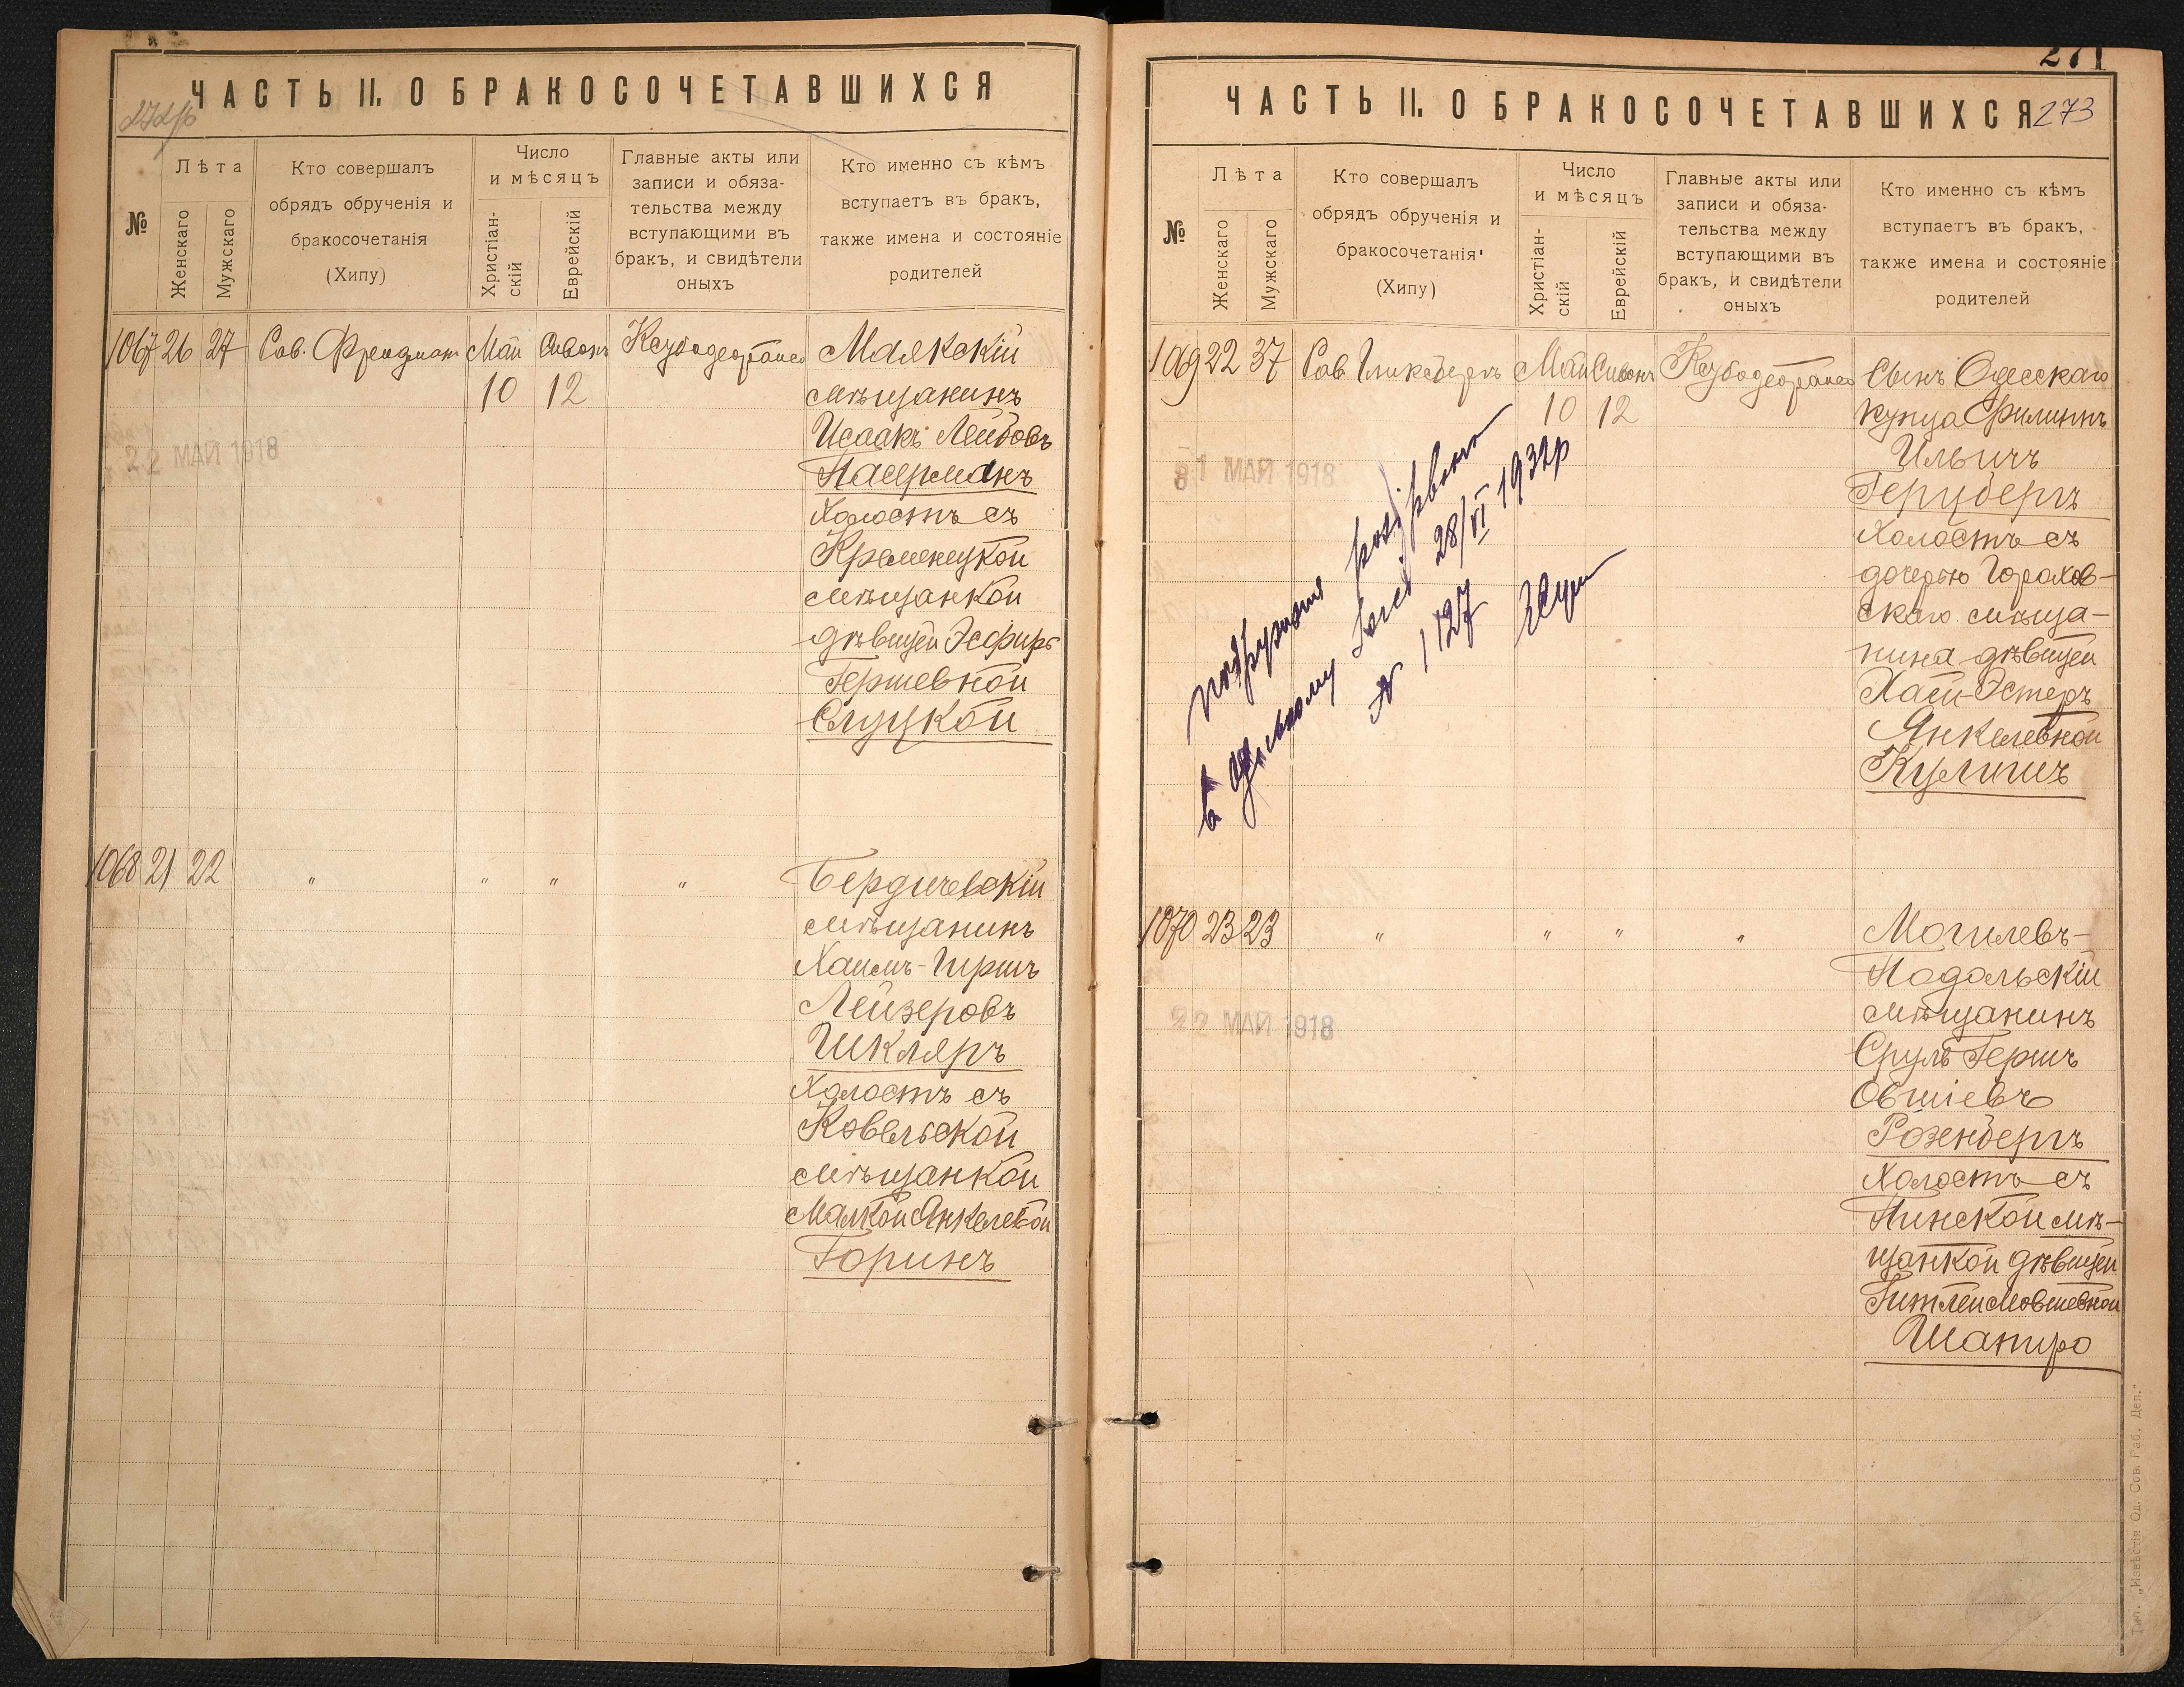 ЧАСТЬ II. О БРАКОСОЧЕТАВШИХСЯ
№
Лѣта
Женскаго
Мужскаго
Кто совершалъ
обрядъ обрученія и
бракосочетанія
(Хипу)
Число
и мѣсяцъ
Христіан-
скій
Еврейскій
Главные акты или
записи и обяза-
тельства между
вступающими въ
бракъ, и свидѣтели
оныхъ
Кто именно съ кѣмъ
вступаетъ въ бракъ,
также имена и состояніе
родителей
1067 26 27 Май Сивонъ
10 12
22 МАЙ 1918
Маякскій
мѣщанинъ
Исаакъ Лейбовъ
Пасерманъ
Холостъ съ
Кременецкой
мѣщанкой
дѣвицей Эсфирь
Гершевной
Слуцкой
1068 21 22 " " " "
Бердичевскій
мѣщанинъ
Хаимъ-Гершъ
Лейзеровъ
Шкляръ
Холостъ съ
Ковельской
мѣщанкой
Малкой Янкелевной
Горинъ
271
ЧАСТЬ II. О БРАКОСОЧЕТАВШИХСЯ
273
№
Лѣта
Женскаго
Мужскаго
Кто совершалъ
обрядъ обрученія и
бракосочетанія
(Хипу)
Число
и мѣсяцъ
Христіан-
скій
Еврейскій
Главные акты или
записи и обяза-
тельства между
вступающими въ
бракъ, и свидѣтели
оныхъ
Кто именно съ кѣмъ
вступаетъ въ бракъ,
также имена и состояніе
родителей
1069 22 37 Май Сивонъ
10 12
31 МАЙ 1918
28/VI 1932р
№ 1127
Сынъ Одесскаго
купца Филиппъ
Ильичъ
Герцбергъ
Холостъ съ
дочерью Горохов-
скаго мѣща-
нина дѣвицей
Хаей-Эстеръ
Янкелевной
Кулишъ
1070 23 23 " " " "
22 МАЙ 1918
Могилевъ-
Подольскій
мѣщанинъ
Сруль Гершъ
Овшіевъ
Розенбергъ
Холостъ съ
Пинской мѣ-
щанкой дѣвицей
Гитлей Мовшевной
Шапиро
Тип. „Извѣстія Од. Сов. Раб. Деп."